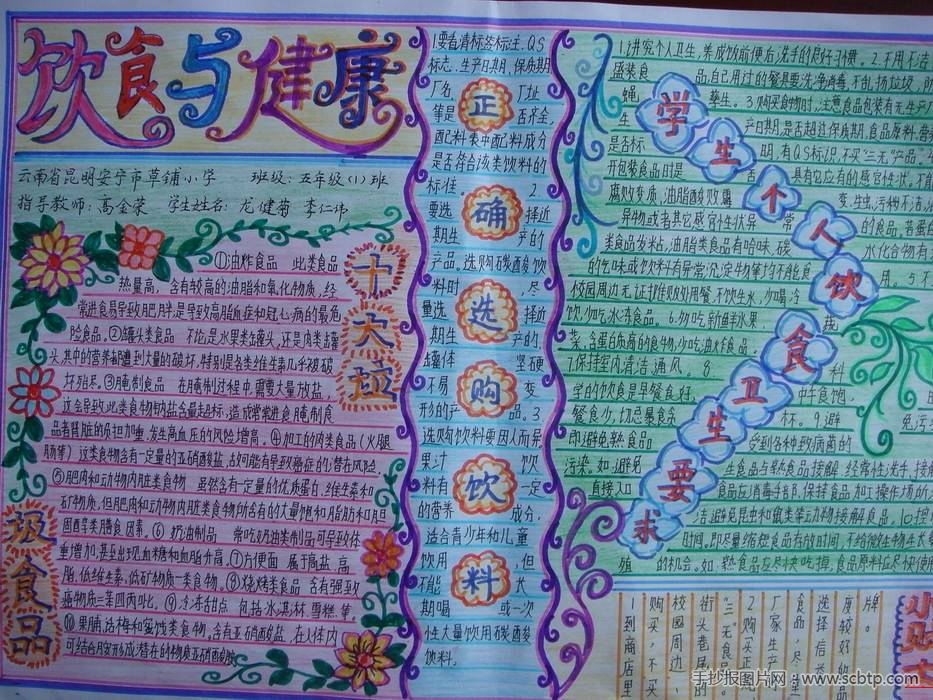 饮食与健康
云南省昆明安宁市草铺小学 班级：五年级(1)班
指导教师：高金荣 学生姓名：龙健菊 李仁伟
十大垃圾食品
①油炸食品 此类食品
热量高，含有较高的油脂和氧化物质，经
常进食易导致肥胖；是导致高脂血症和冠心病的最危
险食品。②罐头类食品 不论是水果类罐头，还是肉类罐
头，其中的营养都遭到大量的破坏，特别是各类维生素几乎被破
坏殆尽。③腌制食品 在腌制过程中，需要大量放盐，
这会导致此类食物钠盐含量超标，造成常常进食腌制食
品者肾脏的负担加重，发生高血压的风险增高。④加工的肉类食品（火腿
肠等） 这类食物含有一定量的亚硝酸盐，故可能有导致癌症的潜在风险。
⑤肥肉和动物内脏类食物 虽然含有一定量的优质蛋白，维生素和
矿物质，但肥肉和动物内脏类食物所含有的大量饱和脂肪和胆
固醇
⑥奶油制品 常吃奶油类制品可导致体
重增加，甚至出现血糖和血脂升高。⑦方便面 属于高盐，高
脂，低维生素，低矿物质一类食物。⑧烧烤类食品 含有强致
癌物质
⑨冷冻甜点 包括冰淇淋，雪糕等。
⑩果脯，话梅和蜜饯类食物，含有亚硝酸盐，在人体内
可结合胺形成潜在的物质亚硝酸胺
正确选购饮料
1.要看清标签标注，QS
标志，生产日期，保质期
厂名 厂址
等是 否齐全，
配料表中配料成分
是否符合该类饮料的
标准。 2
要选 择近
期生 产的
产品。选购碳酸饮
料时 ，尽
量选 择近
期生 产的，
罐体 坚硬
不易 变
形的产 品。3
选购饮料要因人而异
果汁 饮
料有 一定
的营养 成分，
适合青少年和儿童
饮用 ，但
不能 长
期喝 或一次
性大量饮用碳酸
饮料。
学生个人饮食卫生要求
1.讲究个人卫生，养成饭前便后洗手的良好习惯。2.不用不洁
盛装食 品，自己用过的餐具要洗净消毒，不乱扔垃圾，防
蝇 孳生。3.购买食物时，注意食品包装有无生产厂
生 产日期，是否超过保质期，食品原料，营养
是否标 明，有QS标识，不买“三无”产品。
开包装食品时是 否 具有它应有的感官性状。不能
腐败变质，油脂酸败，霉 变，生虫，污物不洁，
异物或者其它感官性状异 常 的食品，若蛋白
类食品发粘，油脂类食品有哈味，碳 水化合物有
的气味或饮料有异常沉淀物等均不能食 用。5.不
校园周边无证摊贩处用餐，不饮生水，勿喝冷
饮，勿吃冰冻食品。6.勿吃新鲜水果， 蔬
菜，含蛋白质高的食物，少吃油炸食品。
7.保持室内清洁，通风。8 科
学的饮食是早餐好， 中午食饱，
餐食少，切忌暴食杀
9.避 免污
即避免熟食品 受到各种致病菌的
污染。如：避免 生食品与熟食品接触，经常性洗手，接触
直接入口
食品 消毒手部，保持食品加工操作场所
洁，避免昆虫和鼠类等动物接触食品。10.控
时间。即尽量缩短食品存放时间，不给微生物生长
殖 的机会。如：熟食品应尽快吃掉，食品原料应尽快使用
牌。
度较好的品
选择信誉
食品，尽
厂家生产的
2.购买正规
“三无”食品。
街头巷尾的
校园周边，
购买，不买
1.到商店里
手抄报图片网：www.scbtp.com